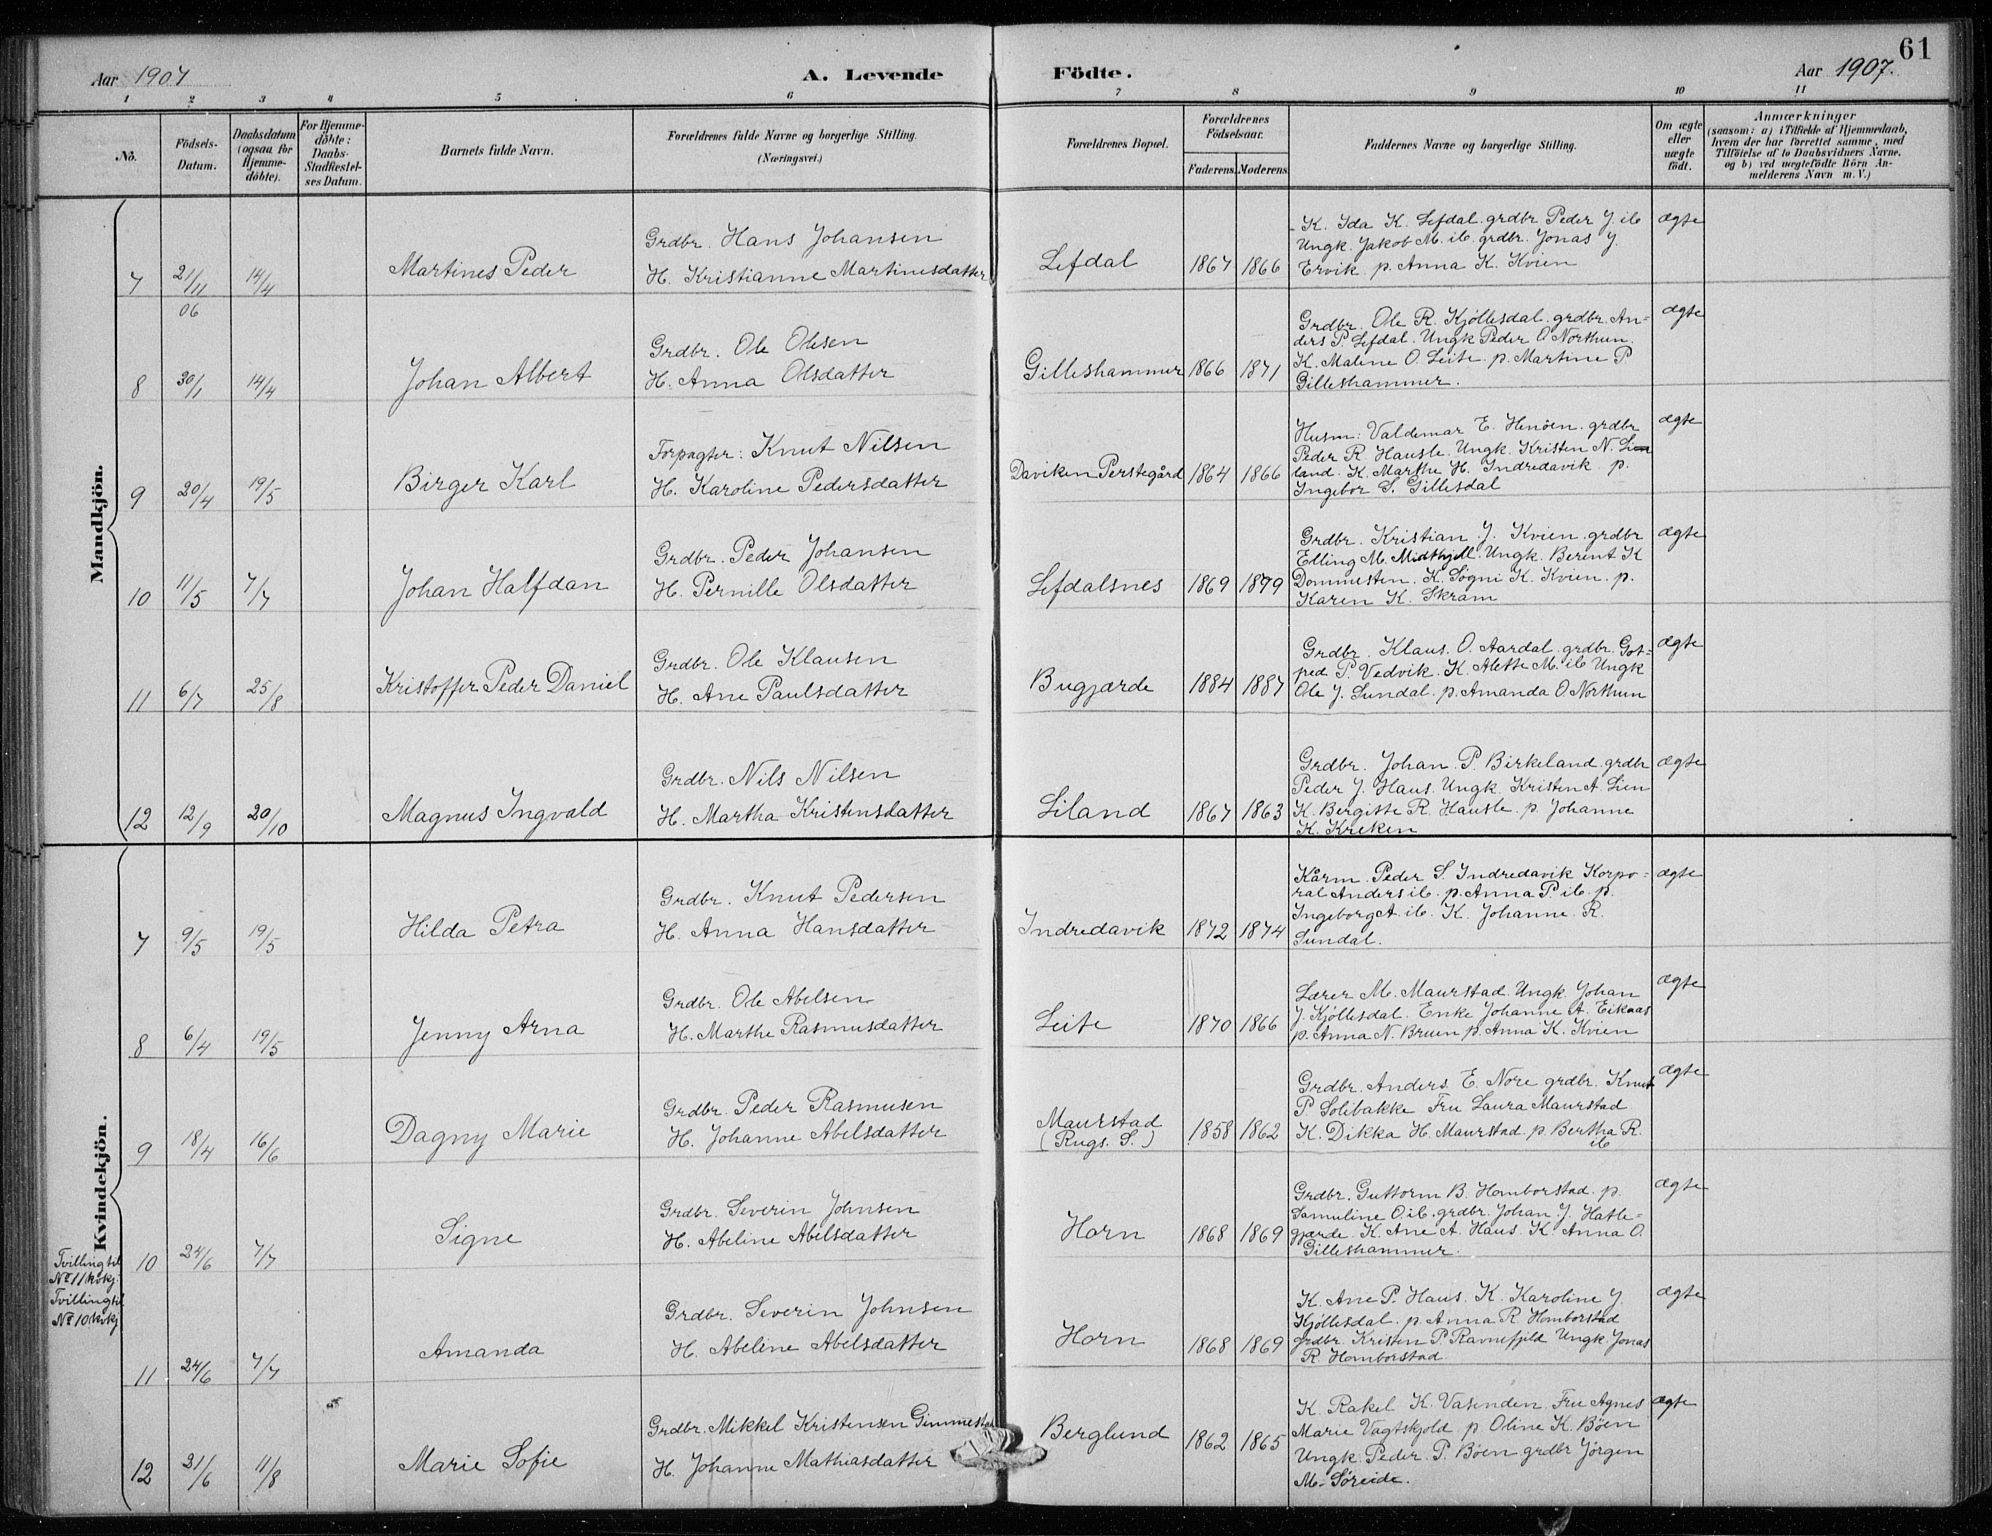 61
Aar 1907
A. Levende
Födte.
Aar 1907.
1 2 3 4 5 6 7 8 9 10 11
Nô.
Födsels-
Datum.
Daabsdatum
(ogsaa for
Hjemme-
döbte).
For Hjemme-
döbte:
Daabs-
Stadfæstel-
ses Datum.
Barnets fulde Navn.
Forældrenes fulde Navne og borgerlige Stilling.
(Næringsvei.)
Forældrenes Bopæl.
Forældrenes
Födselsaar.
Faderens. Moderens.
Faddernes Navne og borgerlige Stilling.
Om ægte
eller
uægte
födt.
Anmærkninger
(saasom: a) i Tilfælde af Hjemmedaab,
hvem der har forrettet samme, med
Tilföielse af to Daabsvidners Navne,
og b) ved uægtefödte Börn An-
melderens Navn m. V.)
Mandkjön.
7 21/11 06 14/4 Martines Peder
Grdbr. Hans Johansen
H. Kristianne Martinesdatter
Lefdal 1867 1866
K. Ida K. Lefdal. grdbr Peder J. ib
Ungk. Jakob M. ib. grdbr. Jonas J.
Ervik. p. Anna K. Kvien
ægte
8 30/1 14/4 Johan Albert
Grdbr. Ole Olesen
H. Anna Olsdatter
Gilleshammer 1866 1871
Grdbr. Ole R. Kjöllesdal. grdbr. An-
ders P Lefdal. Ungk Peder O Northun.
K. Malene O. Leite. p. Martine P
Gilleshammer.
ægte
9 20/4 19/5 Birger Karl
Forpagter: Knut Nilsen
H. Karoline Pedersdatter
Daviken Perstegård 1864 1866
Husm: Valdemar E. Henöen. grdbr
Peder R Hausle. Ungk. Kristen N. Lien
land. K. Marthe H. Indredavik. p.
Ingebor S. Gillesdal
ægte
10 11/5 7/7 Johan Halfdan
Grdbr. Peder Johansen
H. Pernille Olsdatter
Lefdalsnes 1869 1899
Grdbr. Kristian J. Kvien. grdbr
Elling M. Midthjell. Ungk. Berent K
Dommesten. K. Søgni K. Kvien. p.
Karen K. Skram
ægte
11 6/7 25/8 Kristoffer Peder Daniel
Grdbr. Ole Klausen
H. Ane Paulsdatter
Bugjærde 1884 1887
Grdbr. Klaus O. Aardal. grdbr. Got-
fred P. Vedvik. K. Alette M. ib Ungk
Ole J. Sundal. p. Amanda O. Northun
ægte
12 12/9 20/10 Magnus Ingvald
Grdbr. Nils Nilsen
H. Martha Kristensdatter
Liland 1867 1863
Grdbr. Johan P. Birkeland. grdbr
Peder J. Haus. Ungk. Kristen A. Lien
K. Bergitte R. Hausle. p. Johanne
K. Kreken
ægte
Kvindekjön.
7 9/5 19/5 Hilda Petra
Grdbr. Knut Pedersen
H. Anna Hansdatter
Indredavik 1872 1874
Kårm. Peder S. Indredavik Korpo-
ral Anders ib. p. Anna P. ib. p.
Ingeborg A. ib. K. Johanne R.
Sundal.
ægte
8 6/4 19/5 Jenny Arna
Grdbr. Ole Abelsen
H. Marthe Rasmusdatter
Leite 1870 1866
Lærer M. Maurstad. Ungk. Johan
J. Kjöllesdal. Enke Johanne A. Eikaas
p. Anna N. Bruen p. Anna K. Kvien
ægte
9 18/4 16/6 Dagny Marie
Grdbr. Peder Rasmusen
H. Johanne Abelsdatter
Maurstad
(Rugs. S.) 1858 1862
Grdbr. Anders. E. Nore grdbr. Knut
P. Solibakke Fru Laura Maurstad
K. Dikka H. Maurstad. p Bertha R.
ib
ægte
Tvilling til
No 11 kvkj.
10 24/6 7/7 Signe
Grdbr. Severin Johnsen
H. Abeline Abelsdatter
Horn 1868 1869
Grdbr. Guttorm B. Homborstad. p.
Samuline O. ib. grdbr. Johan J. Hatle-
gjærde. K. Ane A. Haus. K. Anna O.
Gilleshammer.
ægte
Tvilling til
No 10 kvkj
11 24/6 7/7 Amanda
Grdbr. Severin Johnsen
H. Abeline Abelsdatter
Horn 1868 1869
K. Ane P. Haus. K. Karoline J.
Kjöllesdal. p. Anna R Homborstad
grdbr. Kristen P. Ravnefjeld Ungk. Jonas
R Homborstad
ægte
12 21/6 11/8 Marie Sofie
Grdbr. Mikkel Kristensen Gimmestad
H. Johanne Mathiasdatter
Berglund 1862 1865
K. Rakel K. Vasenden. Fru Agnes
Marie Vagtskjold p Oline K. Böen
Ungk. Peder. P. Böen grdbr Jörgen
M. Søreide.
ægte